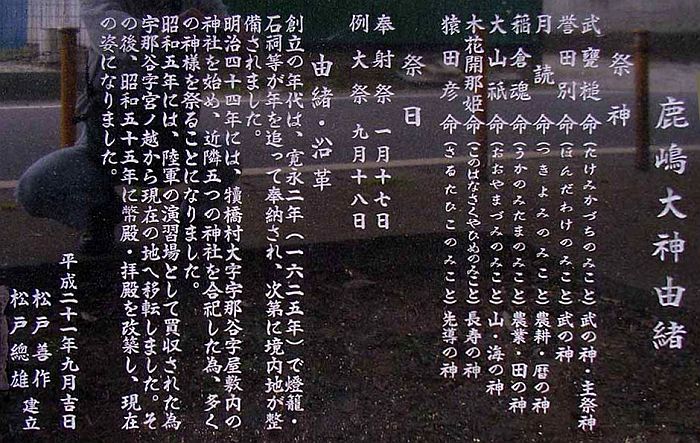 鹿嶋大神由緒
祭神
武甕槌命(たけみかづちのみこと)武の神・主祭神
誉田別命(ほんだわけのみこと)武の神
月読命(つきよみのみこと)農耕・暦の神
稲倉魂命(うかのみたまのみこと)農業・田の神
大山祇命(おおやまづみのみこと)山・海の神
木花開那姫命(このはなさくやひめのみこと)長寿の神
猿田彦命(さるたひこのみこと)先導の神
祭日
奉射祭 一月十七日
例大祭 九月十八日
由緒・沿革
創立の年代は、寛永二年(一六二五年)で燈籠・
石祠等が年を追って奉納され、次第に境内地が整
備されました。
明治四十四年には、犢橋村大字宇那谷字屋敷内の
神社を始め、近隣五つの神社を合祀した為、多く
の神様を祭ることになりました。
昭和五年には、陸軍の演習場として買収された為
宇那谷字宮ノ越から現在の地へ移転しました。そ
の後、昭和五十五年に幣殿・拝殿を改築し、現在
の姿になりました。
平成二十一年九月吉日
松戸善作
松戸總雄 建立